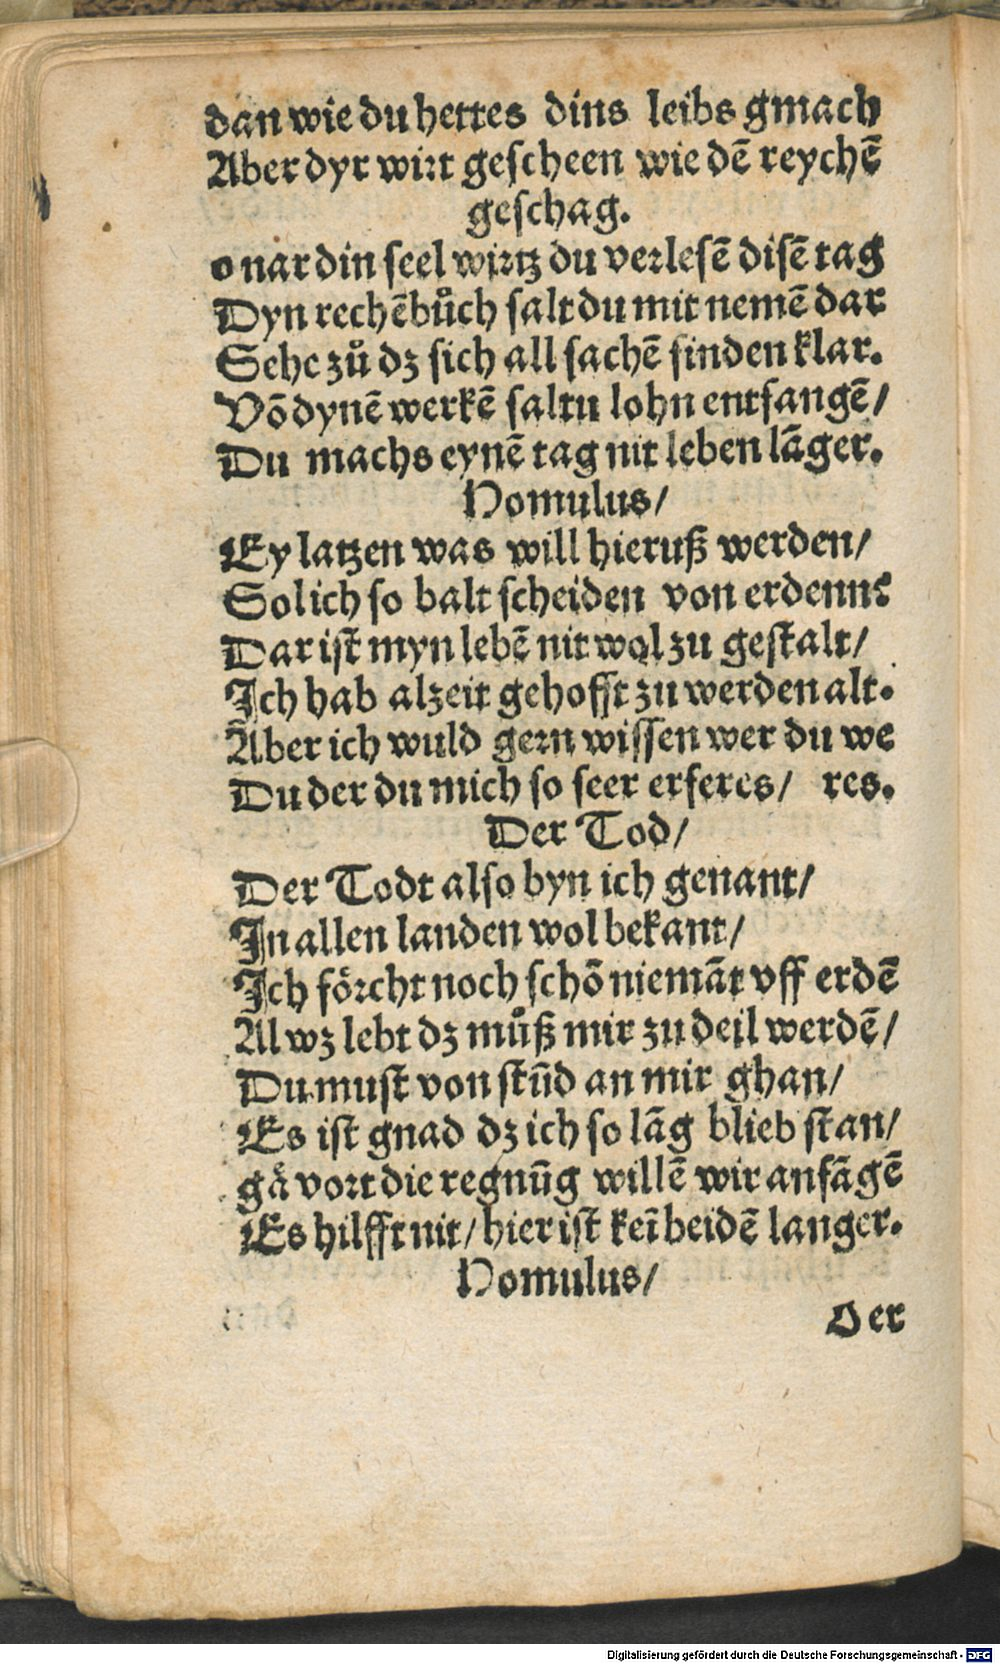 dan wie du hettes dins leibs gmach
Aber dyr wirt gescheen wie dē reychē
geschag.
o nar din seel wirtz du verlesē disē tag
Dyn rechēbůch salt du mit nemē dar
Sehe zů dz sich all sachē finden klar.
Vō dynē werkē saltu lohn entfangē/
Du machs eynē tag nit leben lāger.
Homulus/
Ey latzen was will hieruß werden/
Sol ich so balt scheiden von erdenn?
Dar ist myn lebē nit wol zu gestalt/
Ich hab alzeit gehofft zu werden alt.
Aber ich wuld gern wissen wer du we
Du der du mich so seer erferes/ res.
Der Tod/
Der Todt also byn ich genant/
In allen landen wol bekant/
Ich förcht noch schō niemāt vff erdē
Al wz lebt dz můß mir zu deil werdē/
Du must von stūd an mir ghan/
Es ist gnad dz ich so lāg blieb stan/
gā vort die regnūg willē wir anfāgē
Es hilfft nit/ hier ist keī beidē langer.
Homulus/
Der
Digitalisierung gefördert durch die Deutsche Forschungsgemeinschaft - DFG